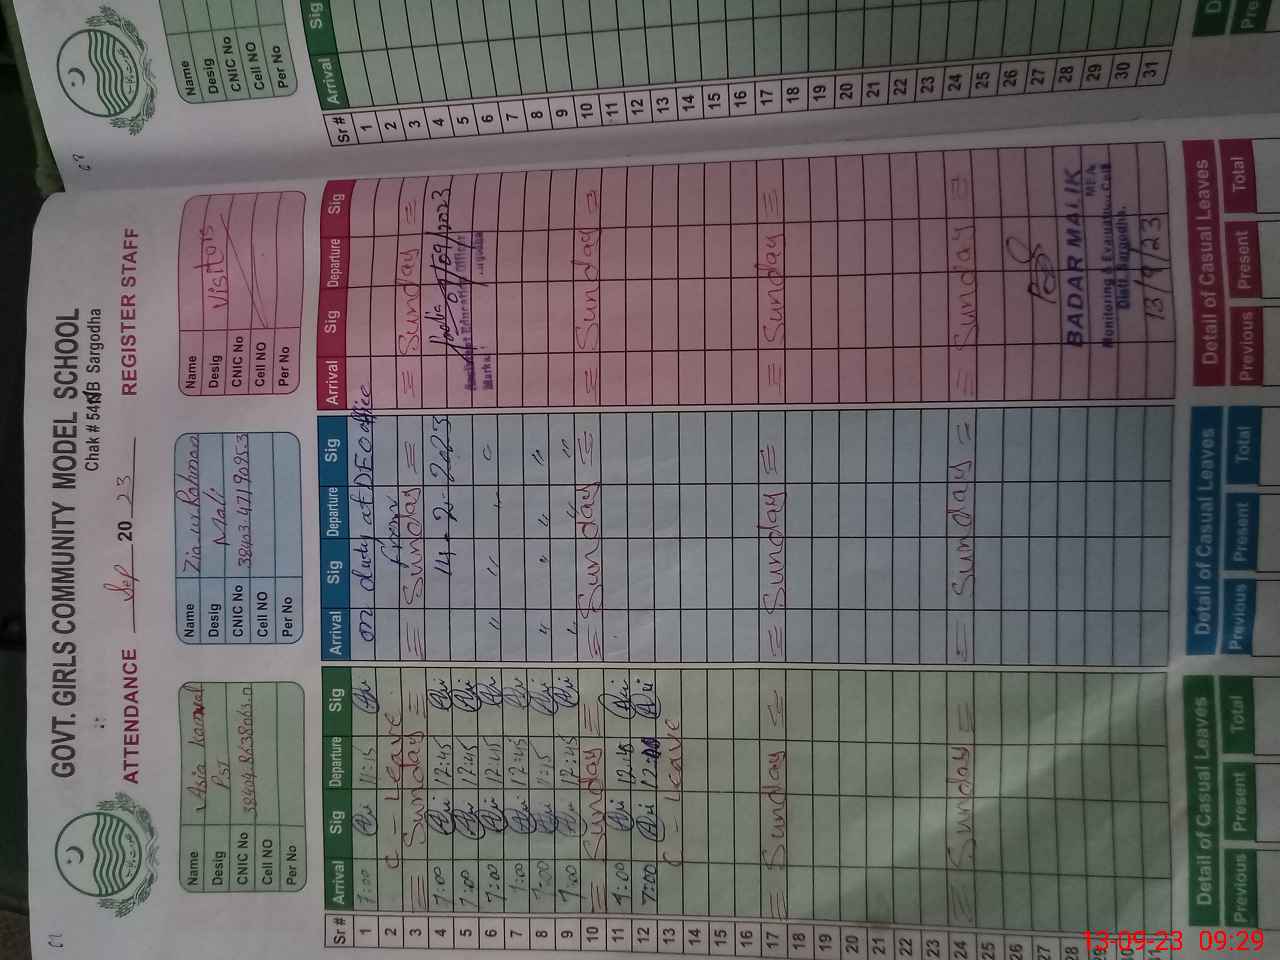 GOVT. GIRLS COMMUNITY MODEL SCHOOL
Chak # 54 NB Sargodha
ATTENDANCE Sep 20 23 REGISTER STAFF
Name Asia Kanwal
Desig PST
CNIC No
Cell NO
Per No
Name Zia-ur-Rahman
Desig Mali
CNIC No
Cell NO
Per No
Name Visitors
Desig
CNIC No
Cell NO
Per No
Sr # Arrival Sig Departure Sig Arrival Sig Departure Sig Arrival Sig Departure Sig
1 7:00 11:15 on duty at DEO office
2 C - Leave from
3 Sunday Sunday Sunday
4 7:00 12:45 14-2-2023
5 7:00 12:45
6 7:00 12:45 " " "
7 7:00 12:45
8 7:00 11:15 " " " "
9 7:00 12:45 " " "
10 Sunday Sunday Sunday
11 7:00 12:45
12 7:00
13 C - Leave
14
15
16
17 Sunday Sunday Sunday
18
19
20
21
22
23
24 Sunday Sunday Sunday
25
26
27
28 BADAR MALIK
29 MEA
Monitoring & Evaluation Cell
30 Distt. Sargodha.
31 13/9/23
Detail of Casual Leaves Detail of Casual Leaves Detail of Casual Leaves
Previous Present Total Previous Present Total Previous Present Total
Name
Desig
CNIC No
Cell NO
Per No
Sr # Arrival Sig
1
2
3
4
5
6
7
8
9
10
11
12
13
14
15
16
17
18
19
20
21
22
23
24
25
26
27
28
29
30
31
13-09-23 09:29